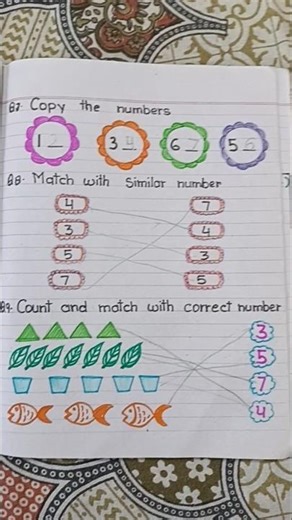 Q7. Copy the numbers
1 2 3 4 6 7 5 6
Q8. Match with Similar number
4 7
3 4
5 3
7 5
Q9. Count and match with correct number
3
5
7
4